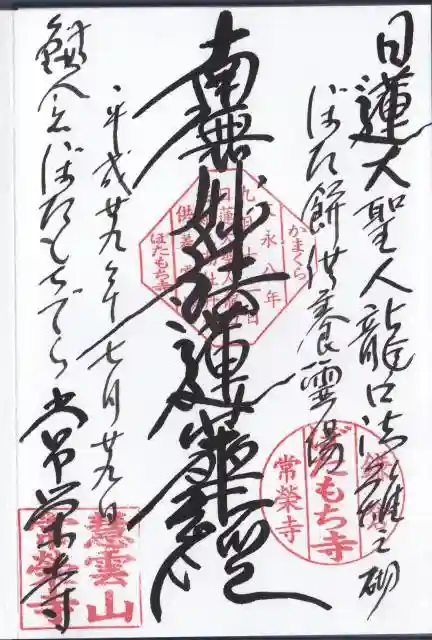 日蓮大聖人龍口法難之砌
ぼたもち供養霊場
南無妙法蓮華経
平成廿九年七月廿九日
鎌倉ぼたもちでら
常栄寺
かまくら
永八年
九月十二日
日蓮
供養
ぼたもち寺
ぼたもち寺
常榮寺
慧雲山
常榮寺